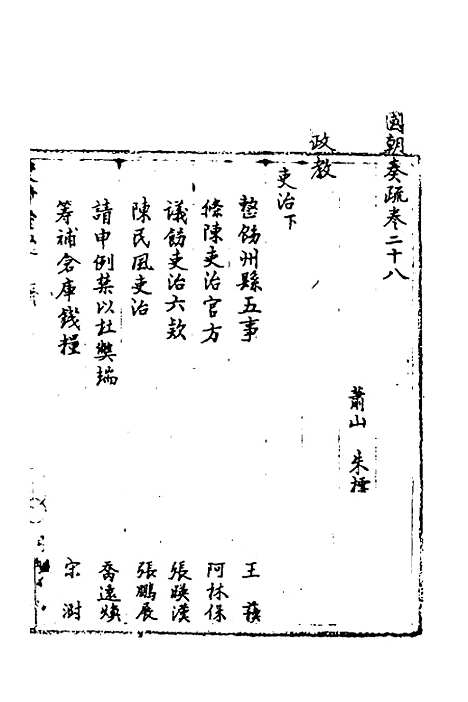 國朝奏疏卷二十八
蕭山 朱橒
政教
吏治下
整飭州縣五事 王 蘐
條陳吏治官方 阿林保
議飭吏治六款 張映漢
陳民風吏治 張鵬展
請申例禁以杜獘端 喬遠煐
籌補倉庫錢糧 宋澍